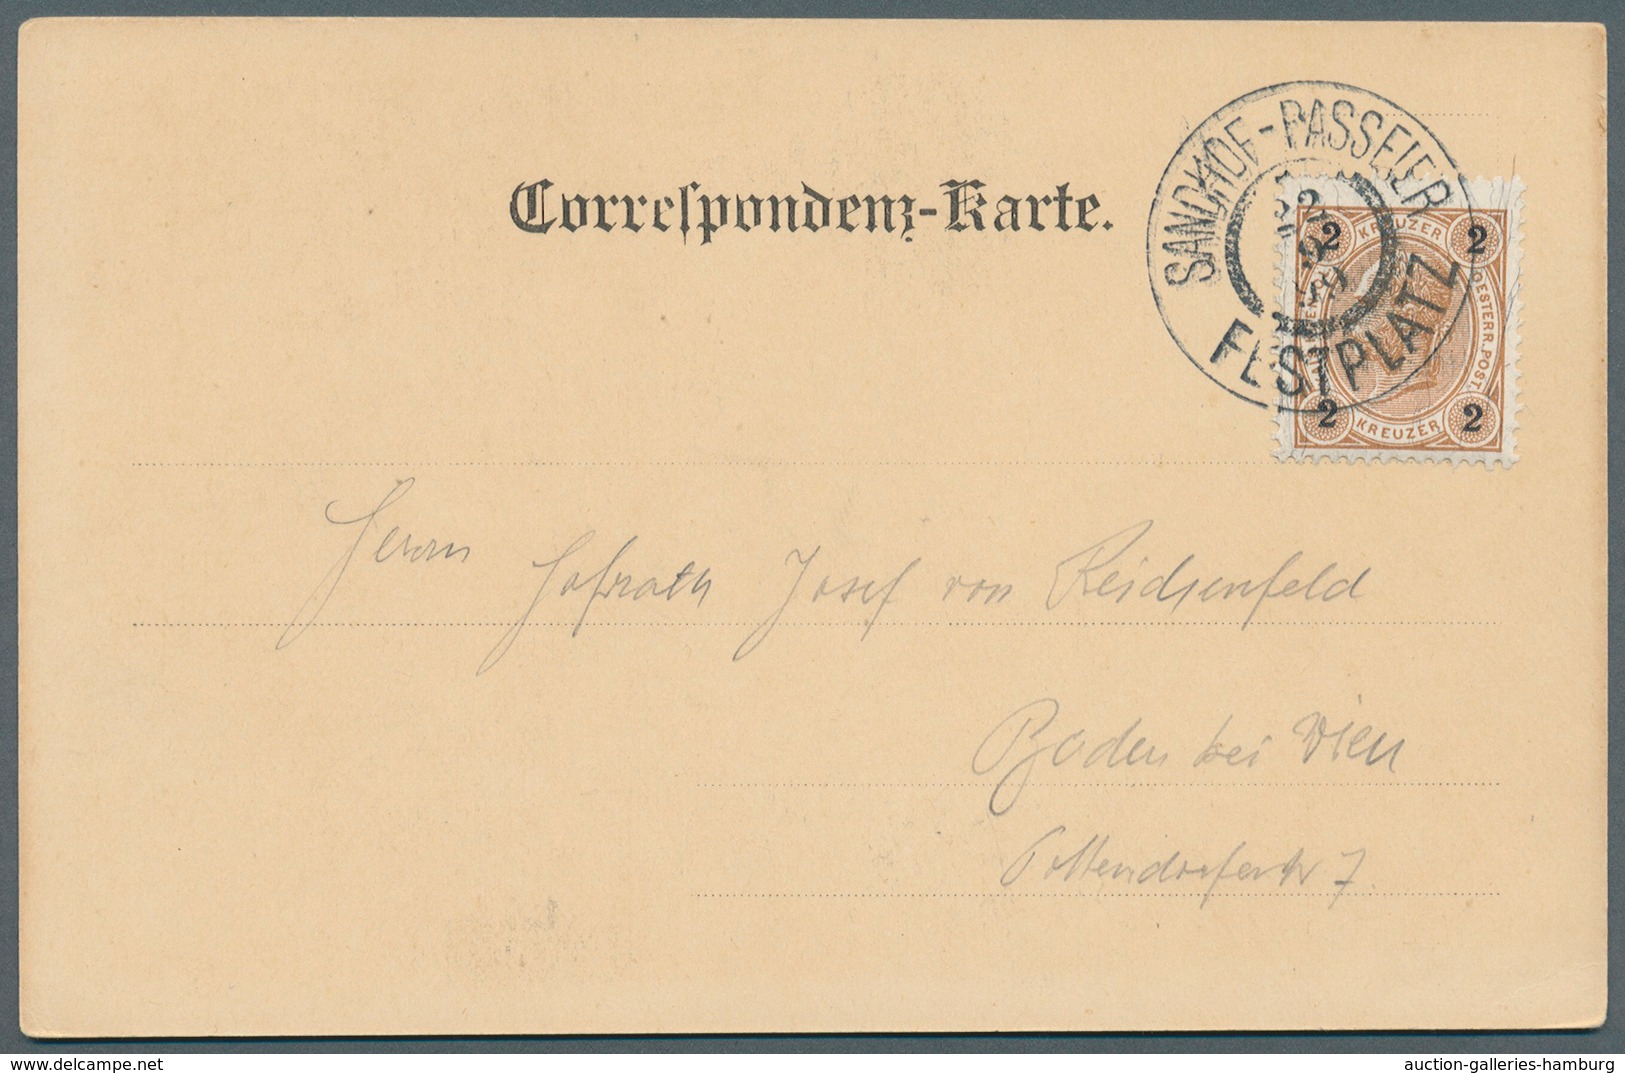 Correspondenz-Karte.
SANDHOF-PASSEIER
22
9
99
FESTPLATZ
2 KREUZER 2
OESTERR.POST.
2 KREUZER 2
Herrn Hofrath Josef von Reichsenfeld
Baden bei Wien
Pottendorferstr 7.
www.delcampe.net
auction-galleries-hamburg